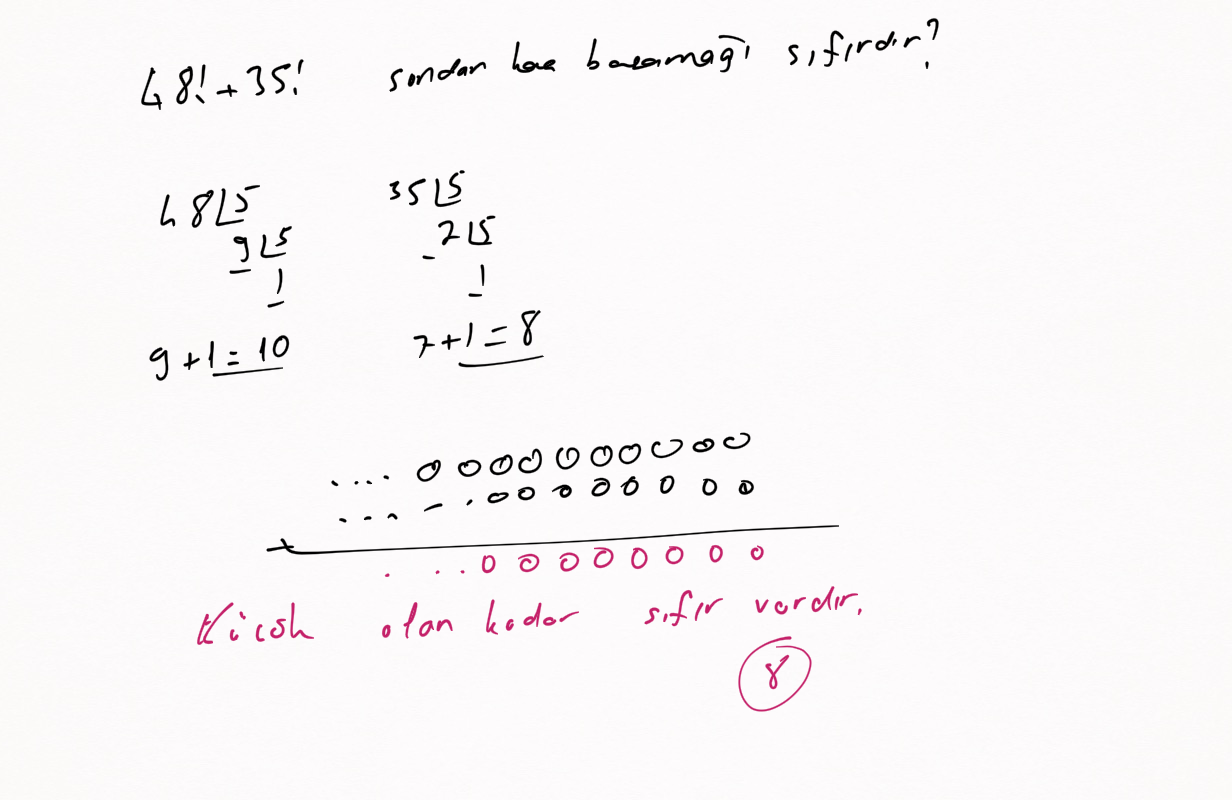 48!+35! sondan kaç basamağı sıfırdır?
48 5 35 5
9 5 7 5
1 1
9+1=10 7+1=8
.... 0000000000
... - .00000000
+
. ..00000000
küçük olan kadar sıfır vardır.
8